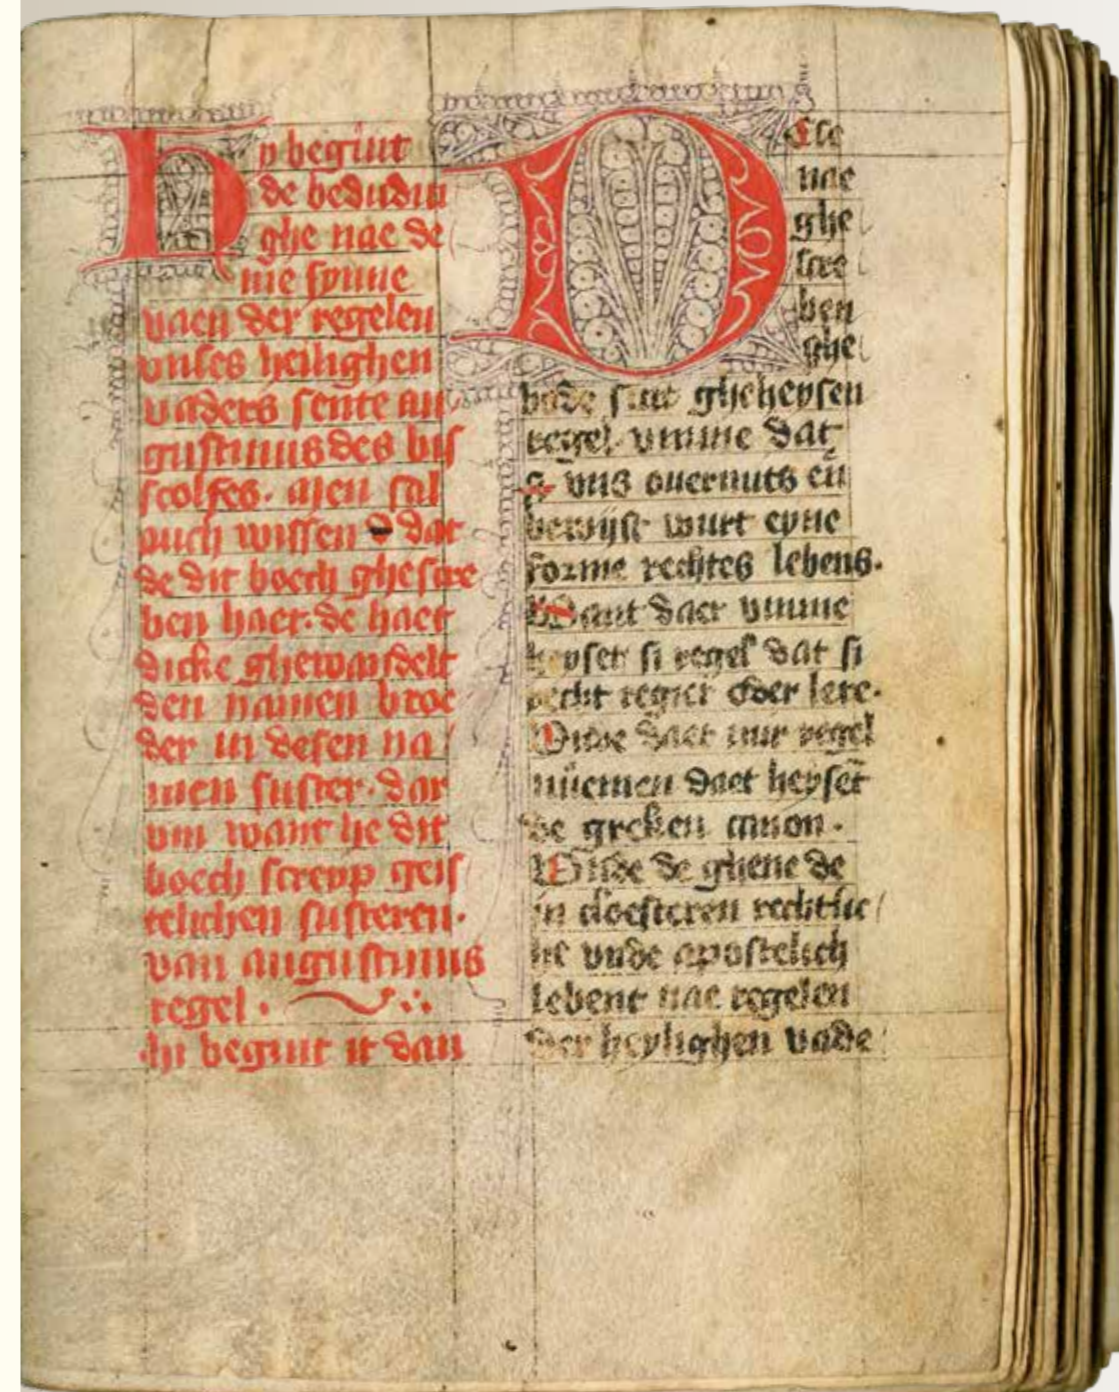 Hy begint
de bedudin
ghe nae de
me synne
vaen der regelen
vnses heilighen
vaders sente au
gustinus des bis
scolfes. Men sal
ouch wissen dat
de dit boech ghescre
ben haet. de haet
dicke ghewandelt
den namen broe
der in desen na
men suster. dar
vm want he dit
boech screyp geis
telichen susteren.
van augustinus
regel.
Hi begint it dan
Dese
nae
ghe
scre
ben
ghe
bode sint gheheysen
regel. vmme dat
vns ouermits en
bewijst wurt eyne
forme rechtes lebens.
Want daer vmme
heyset si regel dat si
recht regiert oder lere.
Vnde daet wir regel
nuemen daet heyset
de greken canon.
Vnde de ghene de
in cloesteren rechtlic
he vnde apostelich
lebent nae regelen
der heylighen vade